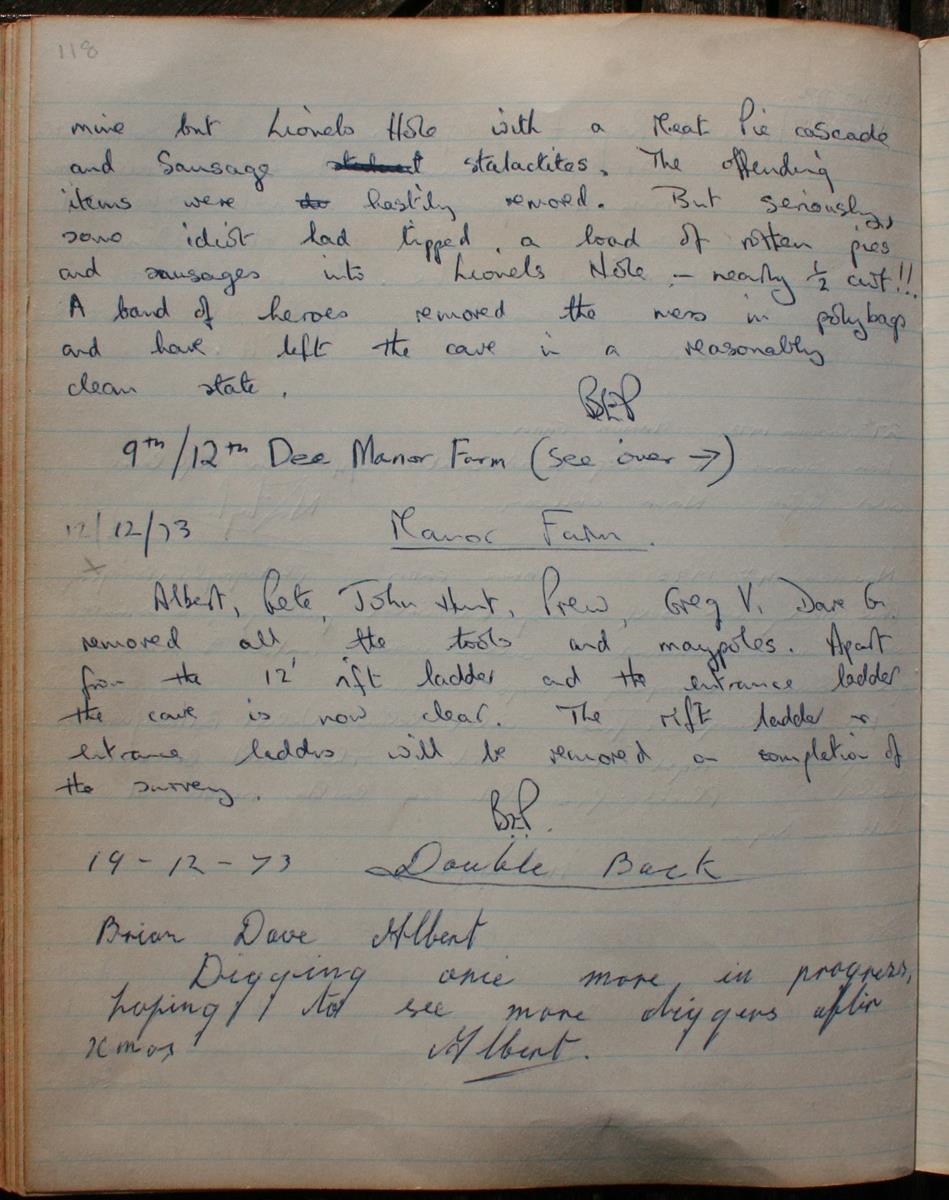 118
mine but Lionels Hole with a Meat Pie cascade
and Sausage stalactites. The offending
items were hastily removed. But seriously,
some idiot had tipped a load of rotten pies
and sausages into Lionels Hole - nearly ½ cwt!!
A band of heroes removed the mess in polybags
and have left the cave in a reasonably
clean state.
BEP
9th/12th Dec Manor Farm (see over →)
12/12/73 Manor Farm.
x
Albert, Pete, John Hunt, Prew, Greg V. Dave G.
removed all the tools and maypoles. Apart
from the 12' rift ladder and the entrance ladder
the cave is now clear. The rift ladder &
entrance ladders will be removed on completion of
the survey.
BEP.
19-12-73 Double Back
Brian Dave Albert
Digging once more in progress,
hoping to see more diggers after
xmas Albert.